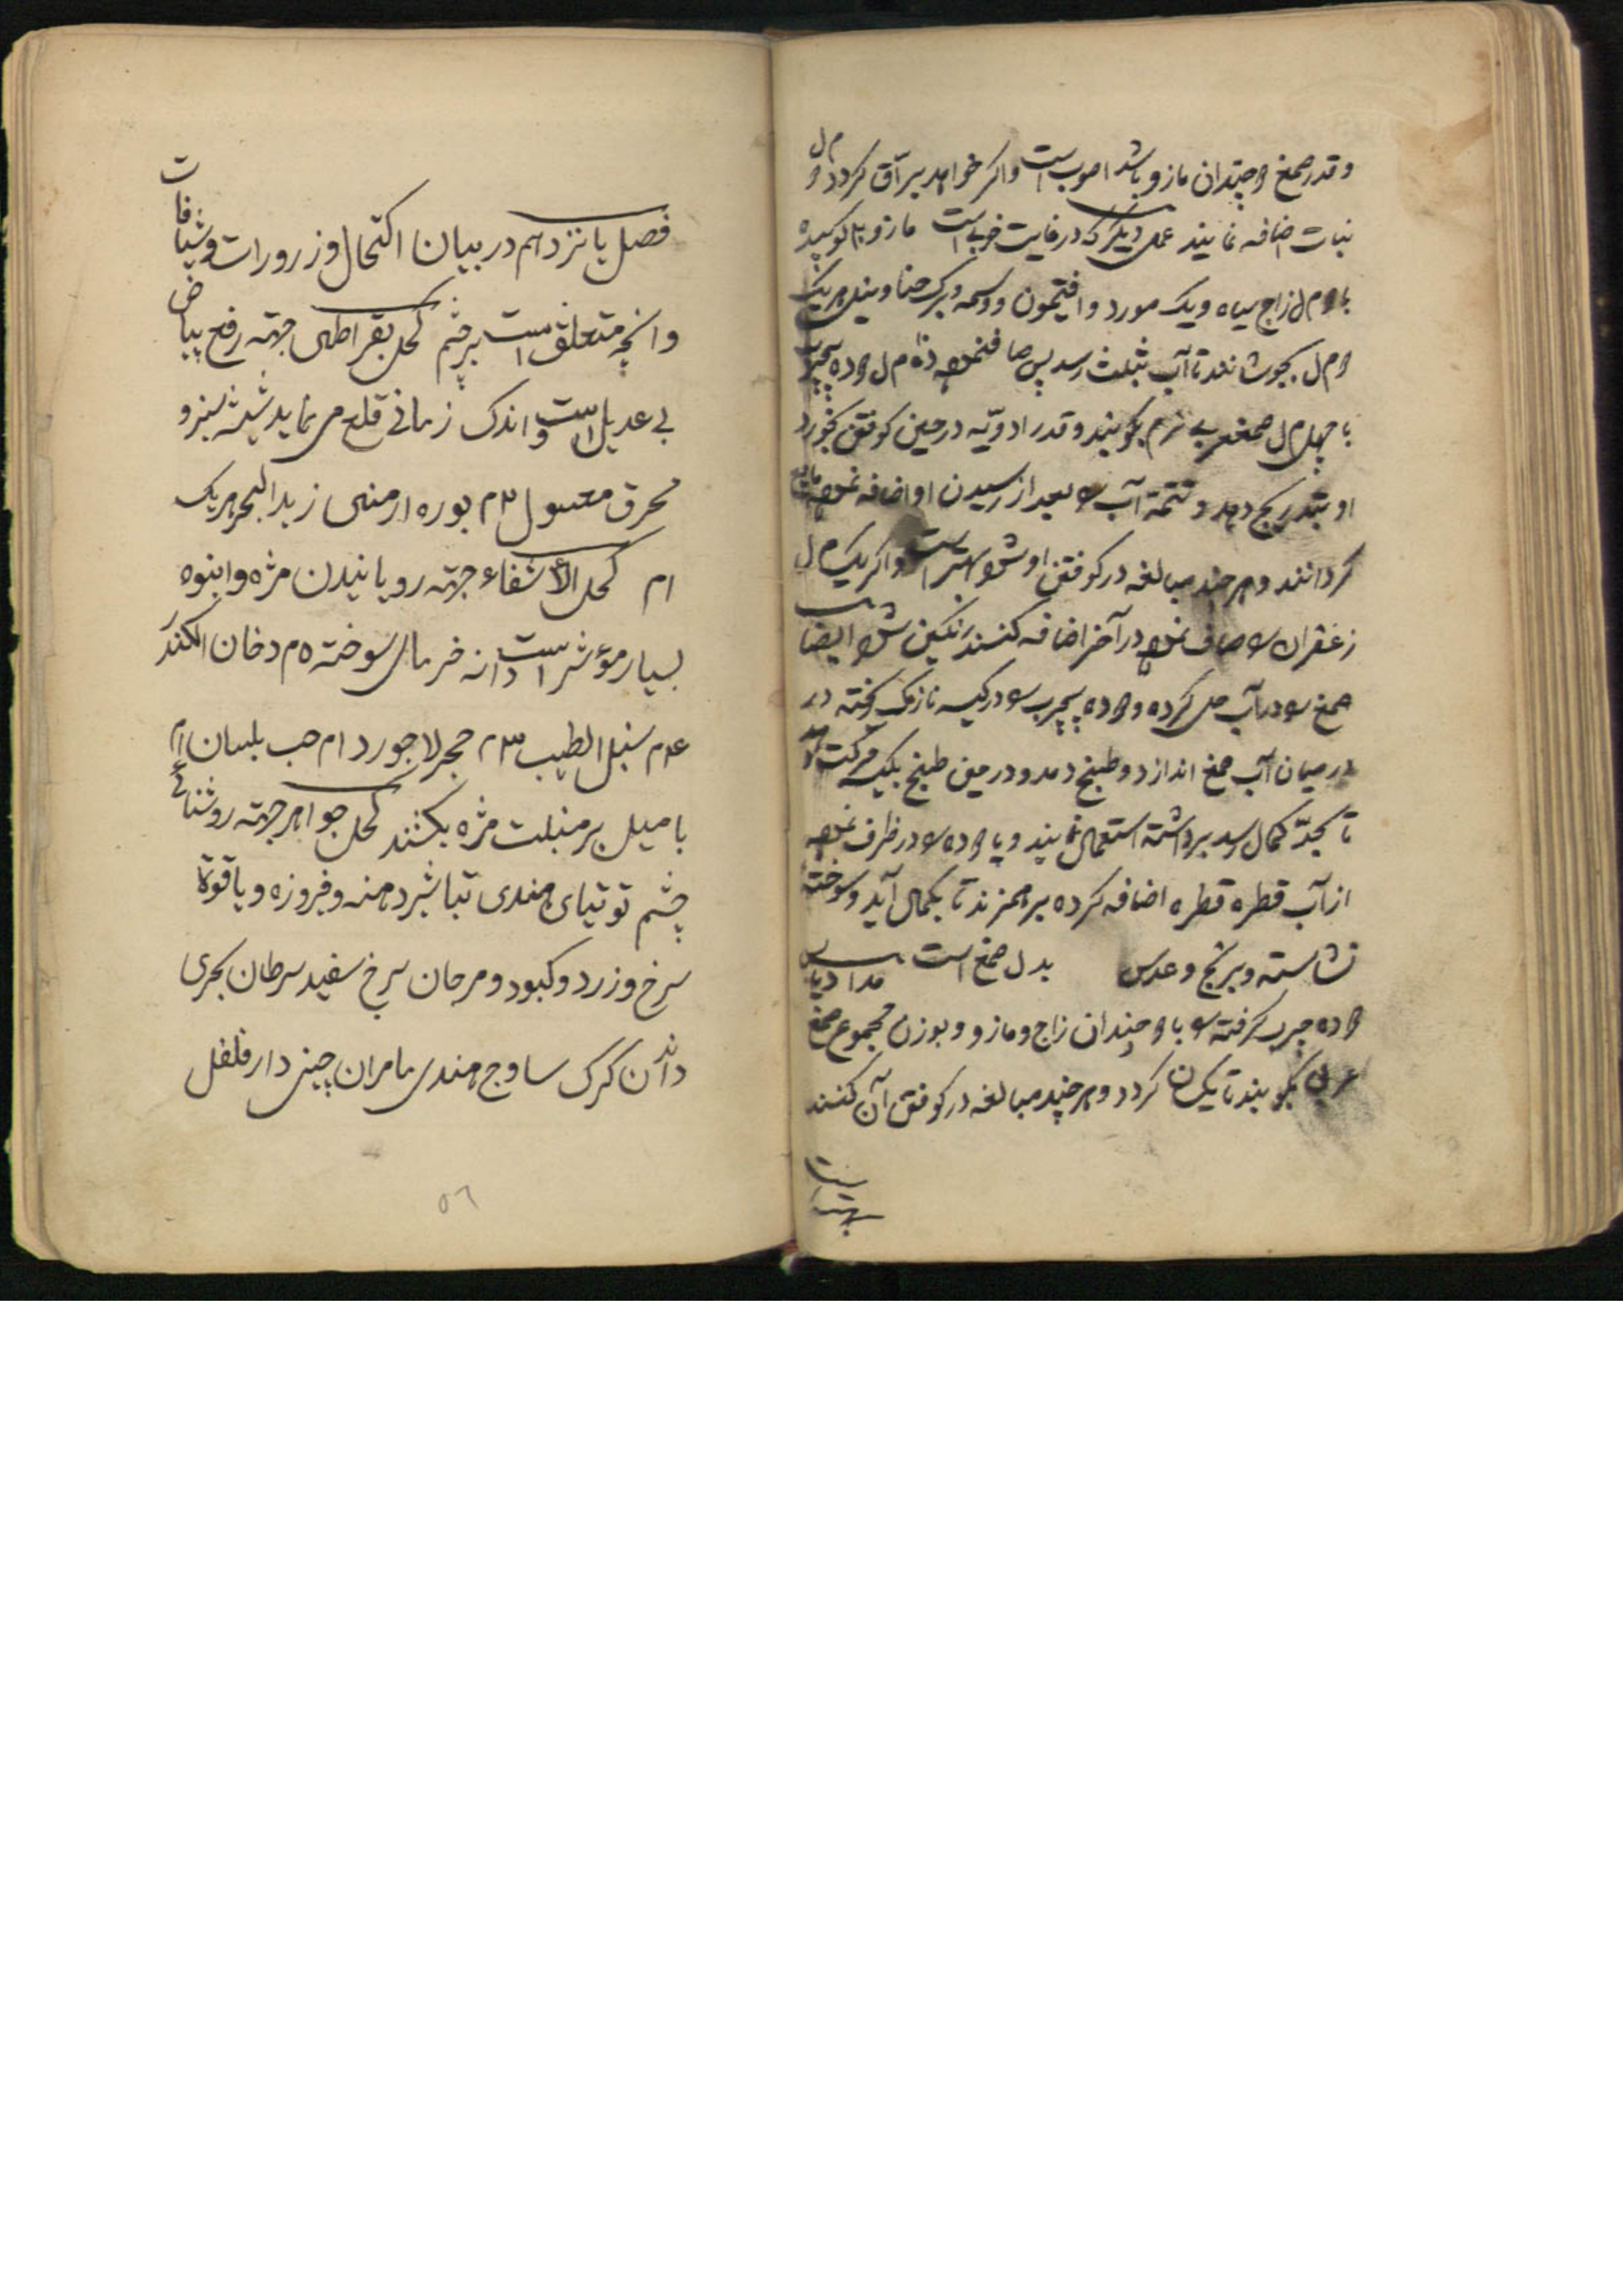 وقدر صمغ دو چندان مازو باشد اصوب است واکر خواهد براق کردد دو م ل
نبات اضافه نمایند عمل دیکر که در غایت خوبی است مازو
زاج سیاه ویک مورد وافتیمون ووسمه وبرک حنا ونیل هریک
م ل بجوشانند تا آب بثلث رسد پس صاف نموده م ل دوده بیچرب
با چهل م ل صمغ عربی نرم بکوبند وقدر ادویه در حین کوفتن بخورد
او بتدریج دهد وتتمة آب را بعد از رسیدن او اضافه نموده
کردانند وهر چند مبالغه در کوفتن او شود بهتر است واکر یک م ل
زعفران را صاف نموده در آخر اضافه کنند رنکین شود ایضا
صمغ را در آب حل کرده ودوده بیچرب را در کیسه نازک ریخته در
در میان آب صمغ اندازد وطبخ دهد ودر حین طبخ یکیک حرکت دهد
تا بحد کمال رسد برداشته استعمال نمایند ویا دوده را در ظرف نموده
از آب قطره قطره اضافه کرده برهم زند تا بکمال آید وسوخته
نشاسته وبرنج وعدس بدل صمغ است
دوده چرب کرفته را با دو چندان زاج ومازو وبوزن مجموع صمغ
عربی بکوبند تا یکسان کردد وهر چند مبالغه در کوفتن آن کنند
بهتر است
فصل پانزدهم در بیان اکتحال وزرورات وشیافات
وانچه متعلق است بر چشم کحل بقراطی جهته رفع بیاض
بی عدیل است واندک زمانی قلع می نماید شیشه سبز و
محرق مغسول ۳م بوره ارمنی زبد البحر هریک
ام کحل الاشفاء جهته رویانیدن مژه وانبوه
بسیار مؤثر است دانه خرمای سوخته ۵م دخان الکندر
۴م سنبل الطیب ۳م حجر لاجورد ام حب بلسان ام
با میل بر منبلت مژه بکشند کحل جواهر جهته روشنائی
چشم توتیای هندی تباشیر دهنه وفروزه ویاقوة
سرخ وزرد وکبود ومرجان سرخ سفید سرطان بحری
دندان کرک ساوج هندی مامران چینی دارفلفل
۵٦